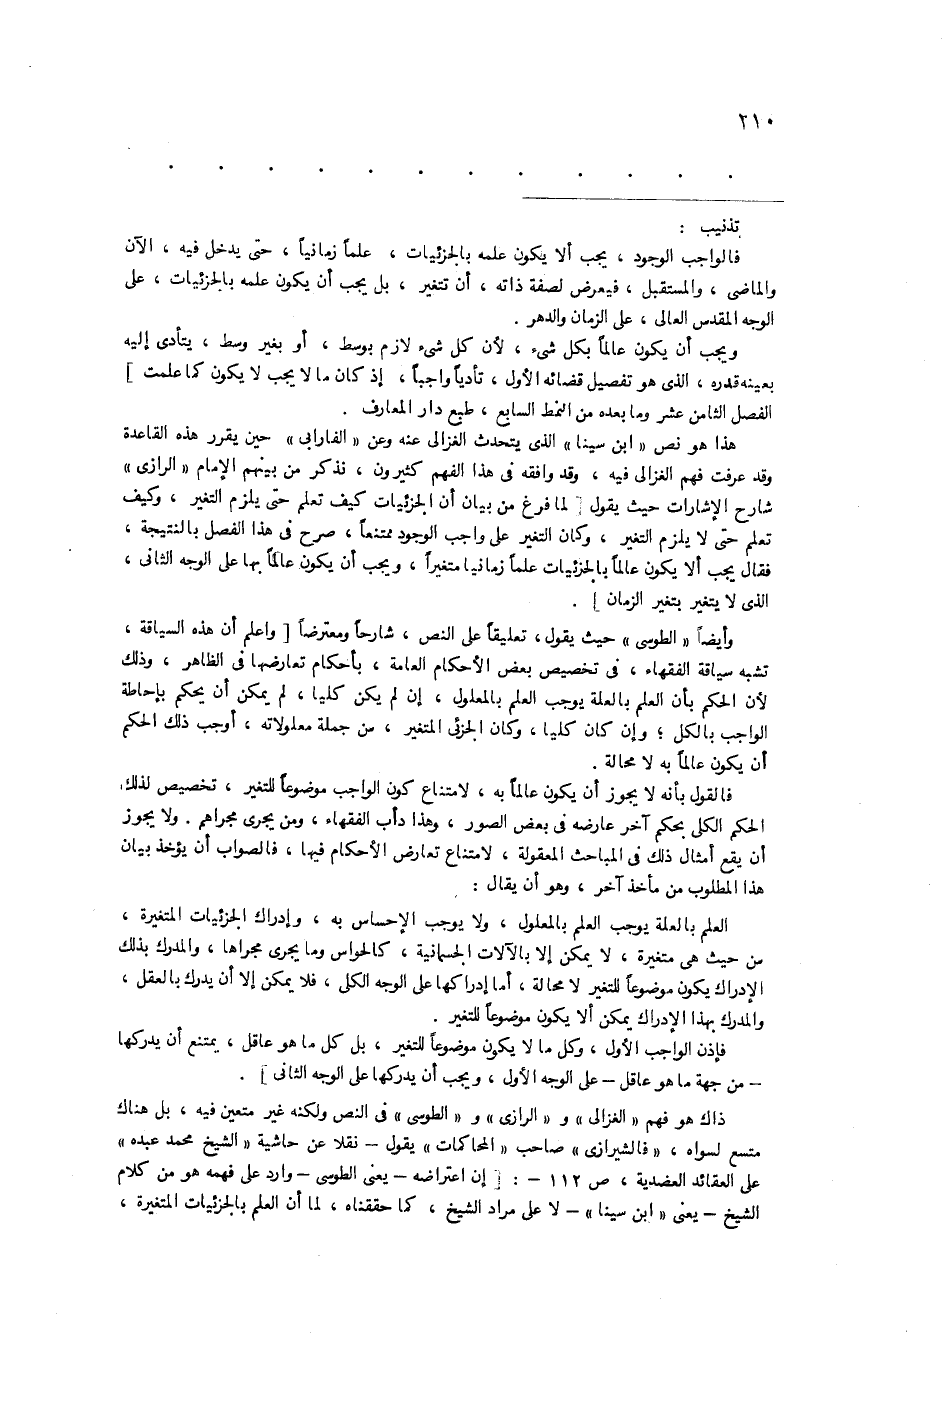 ٢١٠
. . . . . . . . . . . .
تذنيب :
فالواجب الوجود ، يجب ألا يكون علمه بالجزئيات ، علماً زمانياً ، حتى يدخل فيه ، الآن
والماضى ، والمستقبل ، فيعرض لصفة ذاته ، أن تتغير ، بل يجب أن يكون علمه بالجزئيات ، على
الوجه المقدس العالى ، على الزمان والدهر .
ويجب أن يكون عالماً بكل شىء ، لأن كل شىء لازم بوسط ، أو بغير وسط ، يتأدى إليه
بعينه قدره ، الذى هو تفصيل قضائه الأول ، تأدياً واجباً ، إذ كان ما لا يجب لا يكون كما علمت ]
الفصل الثامن عشر وما بعده من النمط السابع ، طبع دار المعارف .
هذا هو نص « ابن سينا » الذى يتحدث الغزالى عنه وعن « الفارابى » حين يقرر هذه القاعدة
وقد عرفت فهم الغزالى فيه ، وقد وافقه فى هذا الفهم كثيرون ، نذكر من بينهم الإمام « الرازى »
شارح الإشارات حيث يقول [ لما فرغ من بيان أن الجزئيات كيف تعلم حتى يلزم التغير ، وكيف
تعلم حتى لا يلزم التغير ، وكان التغير على واجب الوجود ممتنعاً ، صرح فى هذا الفصل بالنتيجة ،
فقال يجب ألا يكون عالماً بالجزئيات علماً زمانيا متغيراً ، ويجب أن يكون عالماً بها على الوجه الثانى ،
الذى لا يتغير بتغير الزمان ] .
وأيضاً « الطوسى » حيث يقول ، تعليقاً على النص ، شارحاً ومعترضاً [ واعلم أن هذه السياقة ،
تشبه سياقة الفقهاء ، فى تخصيص بعض الأحكام العامة ، بأحكام تعارضها فى الظاهر ، وذلك
لأن الحكم بأن العلم بالعلة يوجب العلم بالمعلول ، إن لم يكن كليا ، لم يمكن أن يحكم بإحاطة
الواجب بالكل ؛ وإن كان كليا ، وكان الجزئى المتغير ، من جملة معلولاته ، أوجب ذلك الحكم
أن يكون عالماً به لا محالة .
فالقول بأنه لا يجوز أن يكون عالماً به ، لامتناع كون الواجب موضوعاً للتغير ، تخصيص لذلك
الحكم الكلى بحكم آخر عارضه فى بعض الصور ، وهذا دأب الفقهاء ، ومن يجرى مجراهم . ولا يجوز
أن يقع أمثال ذلك فى المباحث المعقولة ، لامتناع تعارض الأحكام فيها ، فالصواب أن يؤخذ بيان
هذا المطلوب من مأخذ آخر ، وهو أن يقال :
العلم بالعلة يوجب العلم بالمعلول ، ولا يوجب الإحساس به ، وإدراك الجزئيات المتغيرة ،
من حيث هى متغيرة ، لا يمكن إلا بالآلات الجسمانية ، كالحواس وما يجرى مجراها ، والمدرك بذلك
الإدراك يكون موضوعاً للتغير لا محالة ، أما إدراكها على الوجه الكلى ، فلا يمكن إلا أن يدرك بالعقل ،
والمدرك بهذا الإدراك يمكن ألا يكون موضوعاً للتغير .
فإذن الواجب الأول ، وكل ما لا يكون موضوعاً للتغير ، بل كل ما هو عاقل ، يمتنع أن يدركها
– من جهة ما هو عاقل – على الوجه الأول ، ويجب أن يدركها على الوجه الثانى ] .
ذاك هو فهم « الغزالى » و « الرازى » و « الطوسى » فى النص ولكنه غير متعين فيه ، بل هناك
متسع لسواه ، « فالشيرازى » صاحب « المحاكمات » يقول – نقلا عن حاشية « الشيخ محمد عبده »
على العقائد العضدية ، ص ١١٢ – : [ إن اعتراضه – يعنى الطوسى – وارد على فهمه هو من كلام
الشيخ – يعنى « ابن سينا » – لا على مراد الشيخ ، كما حققناه ، لما أن العلم بالجزئيات المتغيرة ،